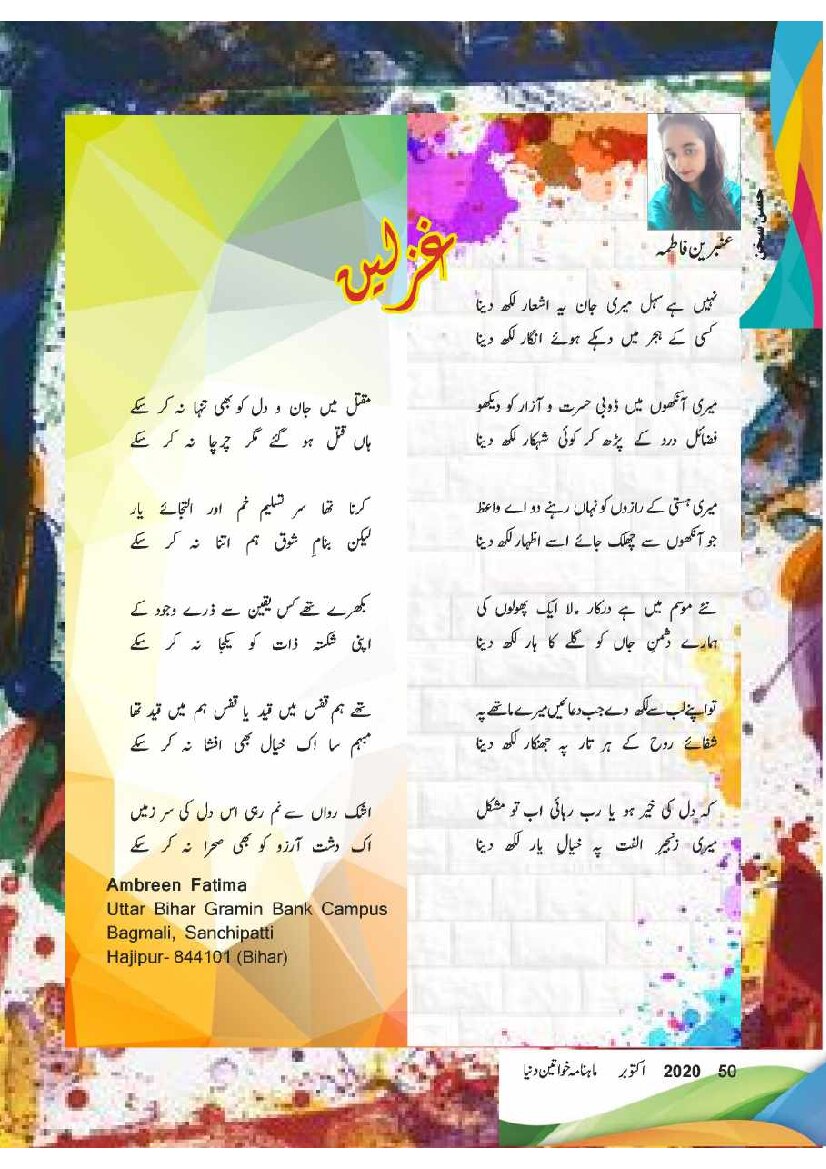 حسن سخن
عنبرین فاطمہ
غزلیں
نہیں ہے سہل میری جان یہ اشعار لکھ دینا
کسی کے ہجر میں دہکے ہوئے انگار لکھ دینا
میری آنکھوں میں ڈوبی حسرت و آزار کو دیکھو
فضائل درد کے پڑھ کر کوئی شہکار لکھ دینا
میری ہستی کے رازوں کو نہاں رہنے دو اے واعظ
جو آنکھوں سے چھلک جائے اسے اظہار لکھ دینا
نئے موسم میں ہے درکار .لا ایک پھولوں کی
ہمارے دشمنِ جاں کو گلے کا ہار لکھ دینا
تو اپنے لب سے لکھ دے جب دعائیں میرے ماتھے پہ
شفائے روح کے ہر تار پہ جھنکار لکھ دینا
کہ دل کی خیر ہو یا رب رہائی اب تو مشکل
میری زنجیرِ الفت پہ خیالِ یار لکھ دینا
مقتل میں جان و دل کو بھی تنہا نہ کر سکے
ہاں قتل ہو گئے مگر چرچا نہ کر سکے
کرنا تھا سر تسلیم خم اور التجائے یار
لیکن بنامِ شوق ہم اتنا نہ کر سکے
بکھرے تھے کس یقین سے ذرے وجود کے
اپنی شکستہ ذات کو یکجا نہ کر سکے
تھے ہم قفس میں قید یا قفس ہم میں قید تھا
مبہم سا اِک خیال بھی افشا نہ کر سکے
اشک رواں سے نم رہی اس دل کی سر زمیں
اک دشت آرزو کو بھی صحرا نہ کر سکے
Ambreen Fatima
Uttar Bihar Gramin Bank Campus
Bagmali, Sanchipatti
Hajipur- 844101 (Bihar)
ماہنامہ خواتین دنیا اکتوبر 2020 50